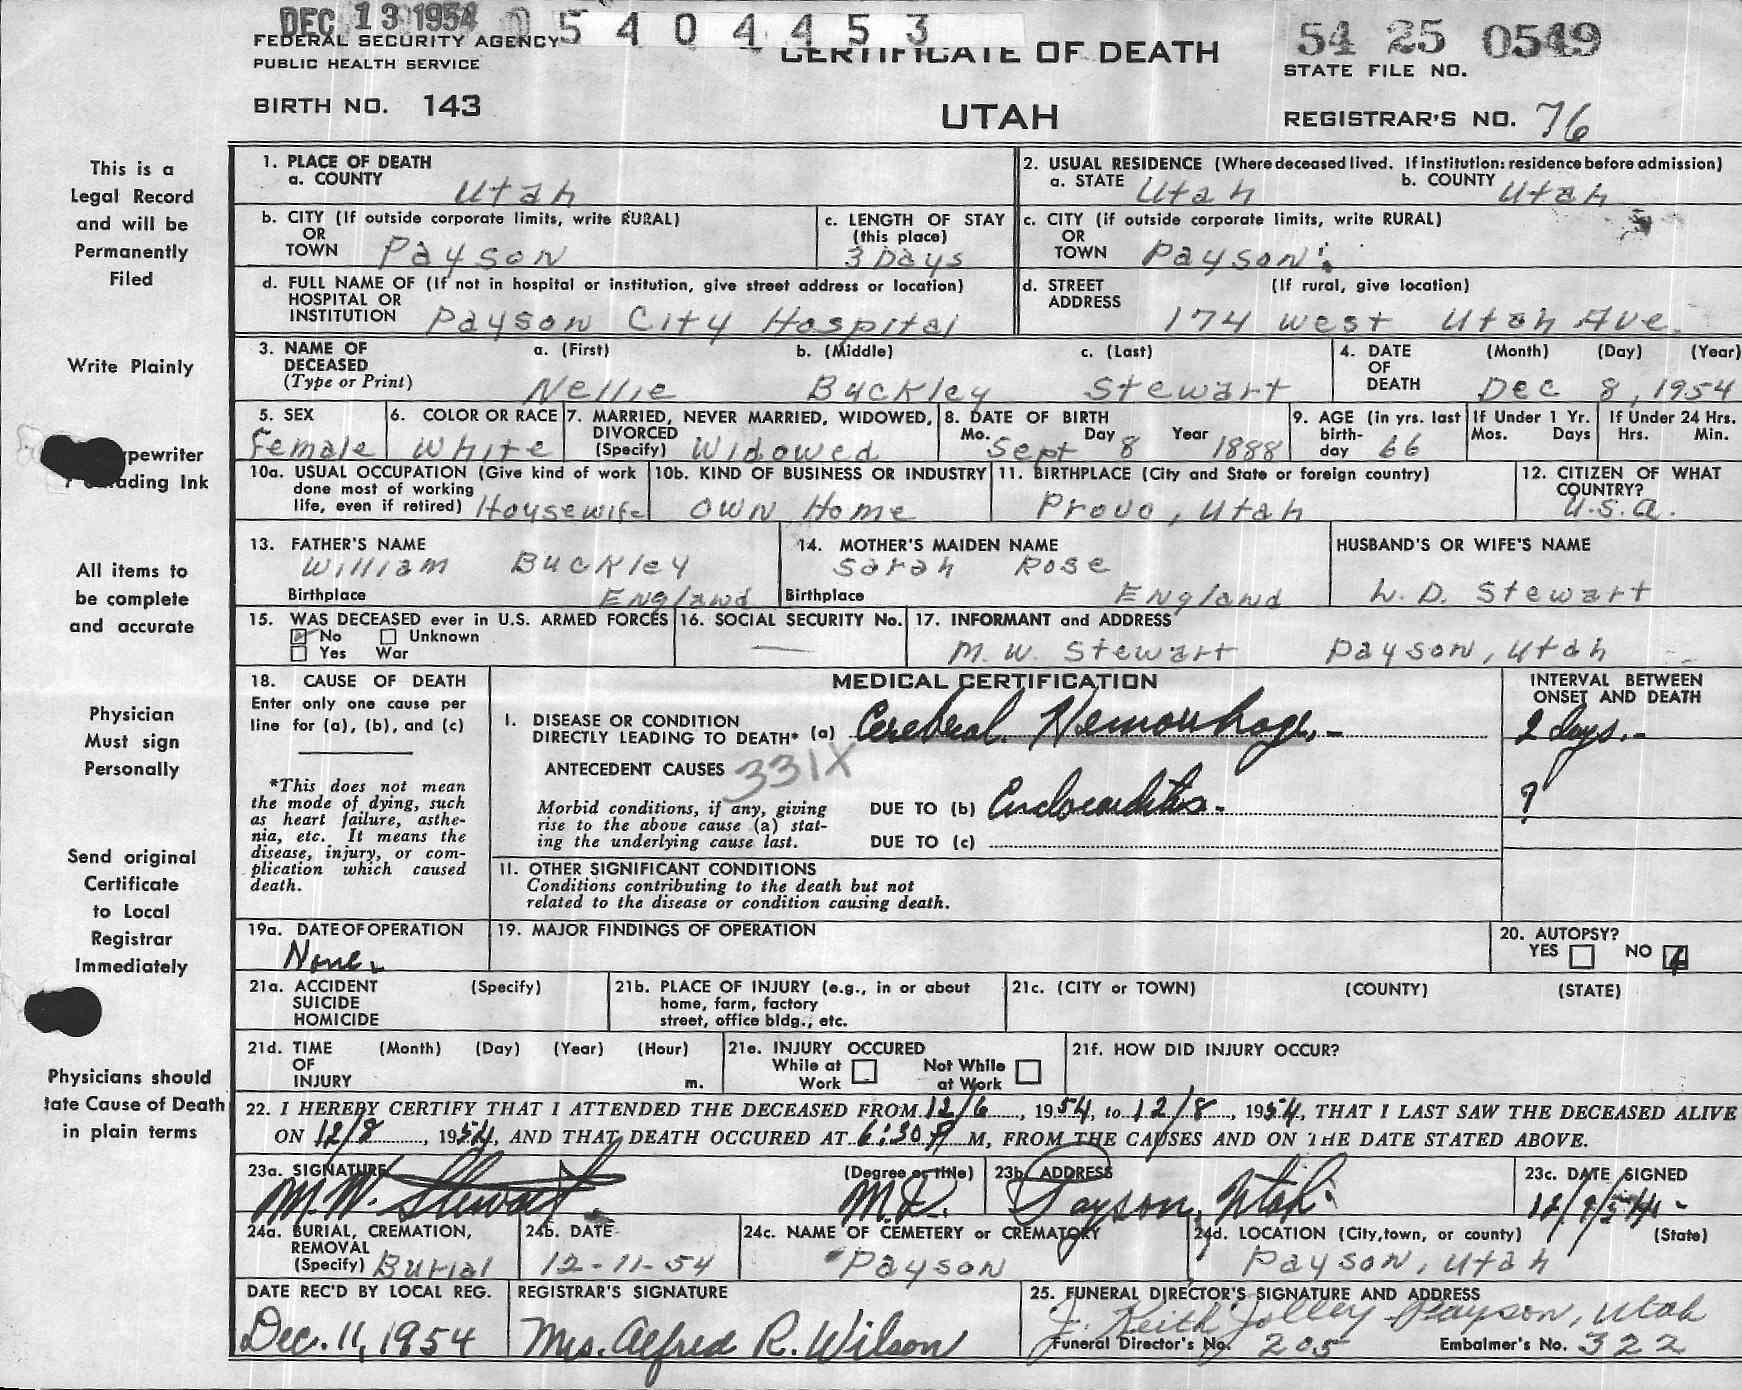 DEC 13 1954 0 5 4 0 4 4 5 3
54 25 0549
FEDERAL SECURITY AGENCY
CERTIFICATE OF DEATH
STATE FILE NO.
PUBLIC HEALTH SERVICE
BIRTH NO. 143
UTAH
REGISTRAR'S NO. 76
This is a
Legal Record
and will be
Permanently
Filed
Write Plainly
pewriter
ading Ink
All items to
be complete
and accurate
Physician
Must sign
Personally
Send original
Certificate
to Local
Registrar
Immediately
Physicians should
tate Cause of Death
in plain terms
1. PLACE OF DEATH
a. COUNTY Utah
2. USUAL RESIDENCE (Where deceased lived. If institution: residence before admission)
a. STATE Utah b. COUNTY Utah
b. CITY (If outside corporate limits, write RURAL)
OR
TOWN Payson
c. LENGTH OF STAY
(this place)
3 Days
c. CITY (if outside corporate limits, write RURAL)
OR
TOWN Payson
d. FULL NAME OF (If not in hospital or institution, give street address or location)
HOSPITAL OR
INSTITUTION Payson City Hospital
d. STREET (If rural, give location)
ADDRESS 174 West Utah Ave.
3. NAME OF a. (First) b. (Middle) c. (Last)
DECEASED
(Type or Print) Nellie Buckley Stewart
4. DATE (Month) (Day) (Year)
OF
DEATH Dec 8, 1954
5. SEX
Female
6. COLOR OR RACE
White
7. MARRIED, NEVER MARRIED, WIDOWED,
DIVORCED
(Specify) Widowed
8. DATE OF BIRTH
Mo. Sept Day 8 Year 1888
9. AGE (in yrs. last
birth-
day 66
If Under 1 Yr.
Mos. Days
If Under 24 Hrs.
Hrs. Min.
10a. USUAL OCCUPATION (Give kind of work
done most of working
life, even if retired) Housewife
10b. KIND OF BUSINESS OR INDUSTRY
Own Home
11. BIRTHPLACE (City and State or foreign country)
Provo, Utah
12. CITIZEN OF WHAT
COUNTRY?
U.S.A.
13. FATHER'S NAME
William Buckley
Birthplace England
14. MOTHER'S MAIDEN NAME
Sarah Rose
Birthplace England
HUSBAND'S OR WIFE'S NAME
L. D. Stewart
15. WAS DECEASED ever in U.S. ARMED FORCES
No Unknown
Yes War
16. SOCIAL SECURITY No.
—
17. INFORMANT and ADDRESS
M. W. Stewart Payson, Utah
18. CAUSE OF DEATH
Enter only one cause per
line for (a), (b), and (c)
*This does not mean
the mode of dying, such
as heart failure, asthe-
nia, etc. It means the
disease, injury, or com-
plication which caused
death.
MEDICAL CERTIFICATION
INTERVAL BETWEEN
ONSET AND DEATH
I. DISEASE OR CONDITION
DIRECTLY LEADING TO DEATH* (a) Cerebral Hemorrhage - 2 days.-
ANTECEDENT CAUSES 331X
Morbid conditions, if any, giving
rise to the above cause (a) stat-
ing the underlying cause last.
DUE TO (b) Endocarditis - ?
DUE TO (c)
II. OTHER SIGNIFICANT CONDITIONS
Conditions contributing to the death but not
related to the disease or condition causing death.
19a. DATE OF OPERATION
None.
19. MAJOR FINDINGS OF OPERATION
20. AUTOPSY?
YES NO
21a. ACCIDENT (Specify)
SUICIDE
HOMICIDE
21b. PLACE OF INJURY (e.g., in or about
home, farm, factory
street, office bldg., etc.
21c. (CITY or TOWN) (COUNTY) (STATE)
21d. TIME (Month) (Day) (Year) (Hour)
OF
INJURY m.
21e. INJURY OCCURED
While at Work Not While at Work
21f. HOW DID INJURY OCCUR?
22. I HEREBY CERTIFY THAT I ATTENDED THE DECEASED FROM 12/6, 1954, to 12/8, 1954, THAT I LAST SAW THE DECEASED ALIVE
ON 12/8, 1954, AND THAT DEATH OCCURED AT 6:30 P M, FROM THE CAUSES AND ON THE DATE STATED ABOVE.
23a. SIGNATURE (Degree or title)
M. W. Stewart M.D.
23b. ADDRESS
Payson, Utah.
23c. DATE SIGNED
12/9/54-
24a. BURIAL, CREMATION,
REMOVAL
(Specify) Burial
24b. DATE
12-11-54
24c. NAME OF CEMETERY or CREMATORY
Payson
24d. LOCATION (City, town, or county) (State)
Payson, Utah
DATE REC'D BY LOCAL REG.
Dec. 11, 1954
REGISTRAR'S SIGNATURE
Mrs. Alfred R. Wilson
25. FUNERAL DIRECTOR'S SIGNATURE AND ADDRESS
J. Keith Jolley Payson, Utah
Funeral Director's No. 205 Embalmer's No. 322